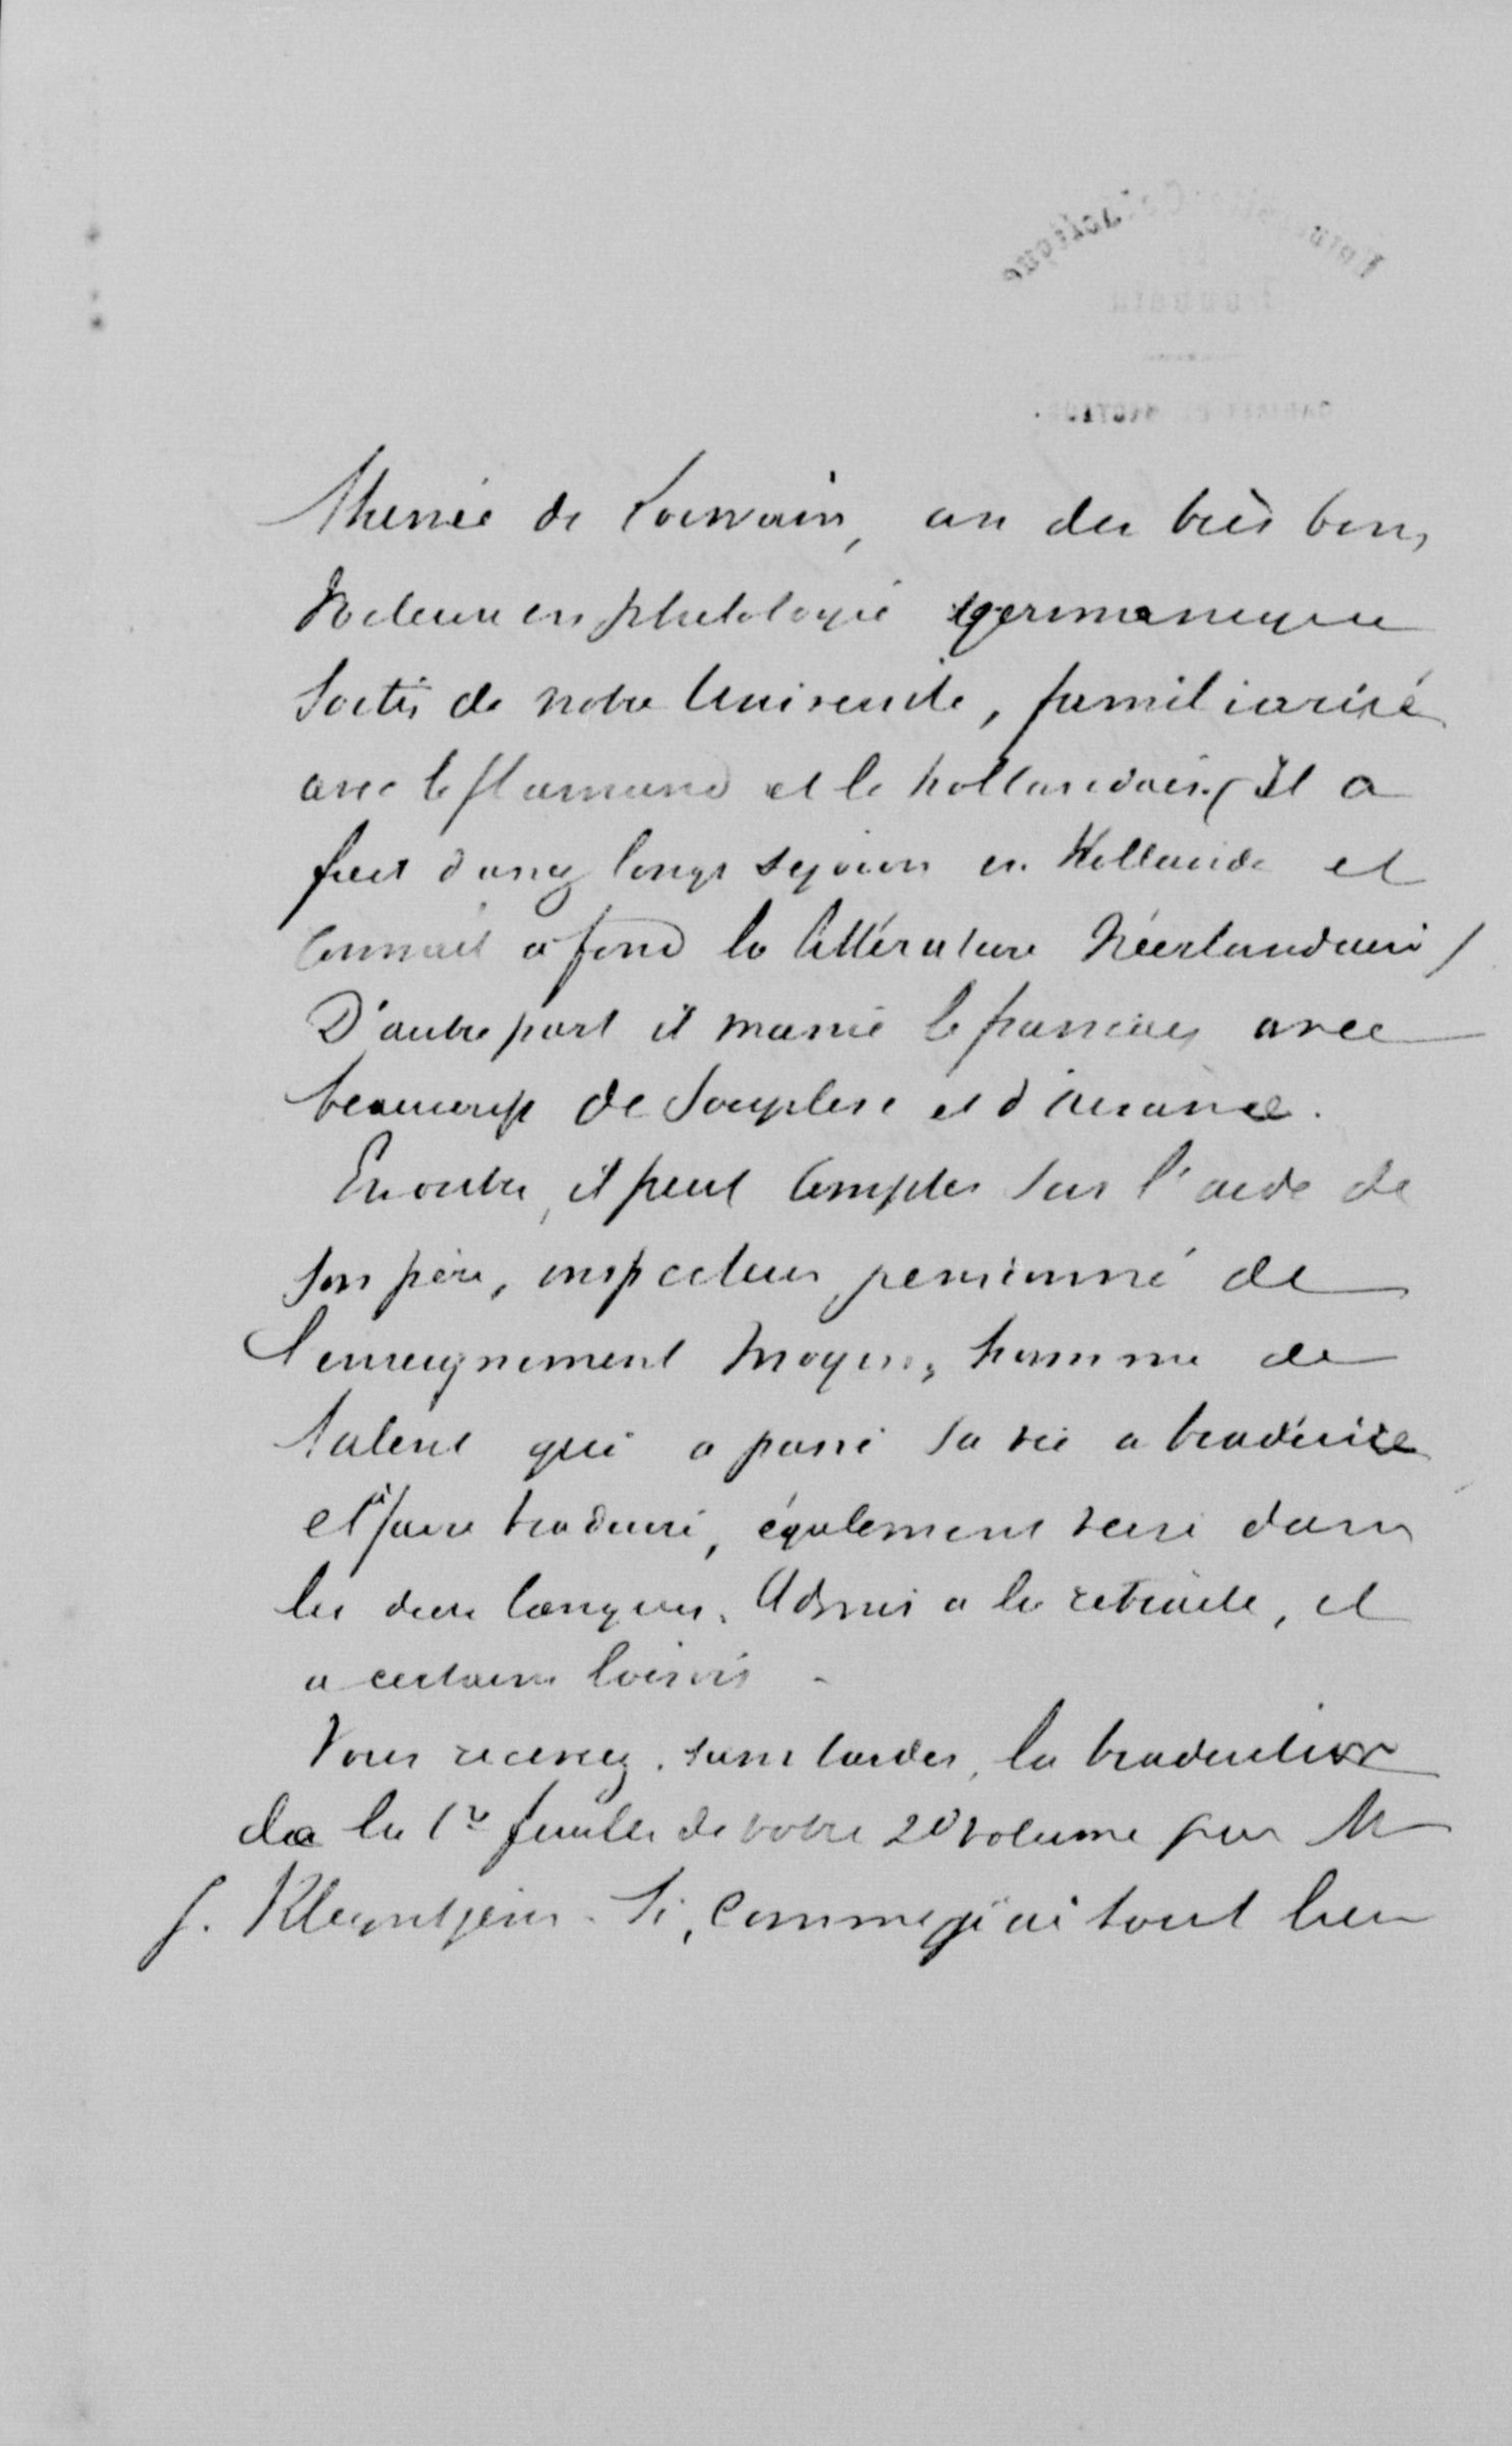 Athenée de Louvain, un des très bons
Docteurs en philologie germanique
sortis de notre Université, familiarisé
avec le flamand et le hollandais (il a
fait d'assez longs séjours en Hollande et
connait à fond la littérature Néerlandaise)
D'autre part il manie le français avec
beaucoup de souplesse et d'aisance.
En outre, il peut compter sur l'aide de
son père, inspecteur pensionné de
l'enseignement moyen, homme de
talent qui a passé sa vie a traduire
et à faire traduire, également versé dans
les deux langues. Admis a la retraite, il
a certains loisirs.
Vous recevrez, sans tarder, la traduction
de la 1re feuille de votre 2d volume par M
J. Kleyntjens. Si, comme j'ai tout lieu